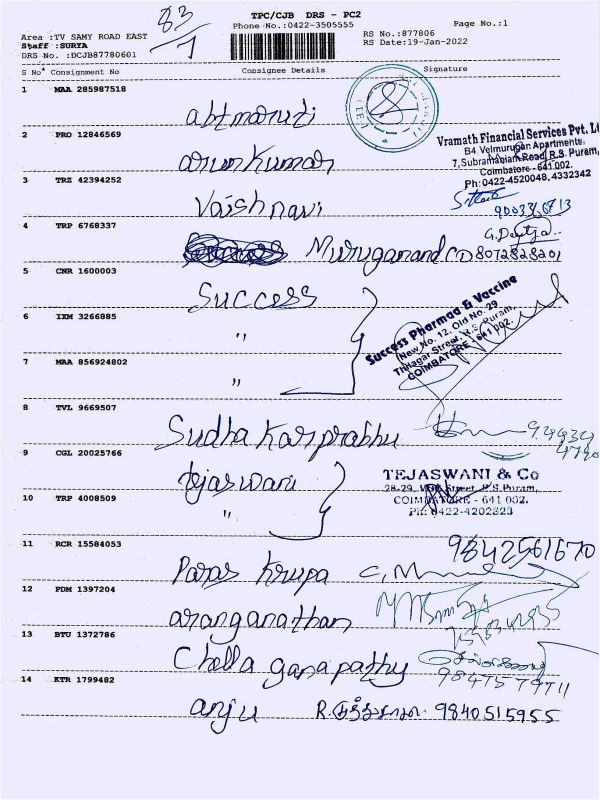 83/1
TPC/CJB DRS - PC2
Phone No.:0422-3505555
Page No.:1
Area :TV SAMY ROAD EAST
Staff :SURYA
DRS No. :DCJB87780601
RS No.:877806
RS Date:19-Jan-2022
S No Consignment No Consignee Details Signature
1 MAA 285987518
abtmaruti
2 PRO 12846569
arunkumar
Vramath Financial Services Pvt. Lt
B4 Velmurugan Apartments,
7, Subramaniam Road, R.S. Puram,
Coimbatore - 641 002.
Ph: 0422-4520048, 4332342
3 TRZ 42394252
Vaishnavi
4 TRP 6768337
Muruganand CD 8072828201
5 CNR 1600003
Success
Success Pharmaa & Vaccine
New No. 12, Old No. 29
Thilagar Street, R.S. Puram,
COIMBATORE - 641 002.
6 IXM 3266885
"
7 MAA 856924802
"
8 TVL 9669507
Sudha Karprabhu
9 CGL 20025766
tejaswani
TEJASWANI & Co
28-29, Street, R.S.Puram,
COIMBATORE - 641 002.
PH: 0422-4202823
10 TRP 4008509
"
11 RCR 15584053
9842561670
Paras Krupa
12 PDM 1397204
aranganathan
13 BTU 1372786
Chella ganapathy
14 KTR 1799482
anju R. 9840515955